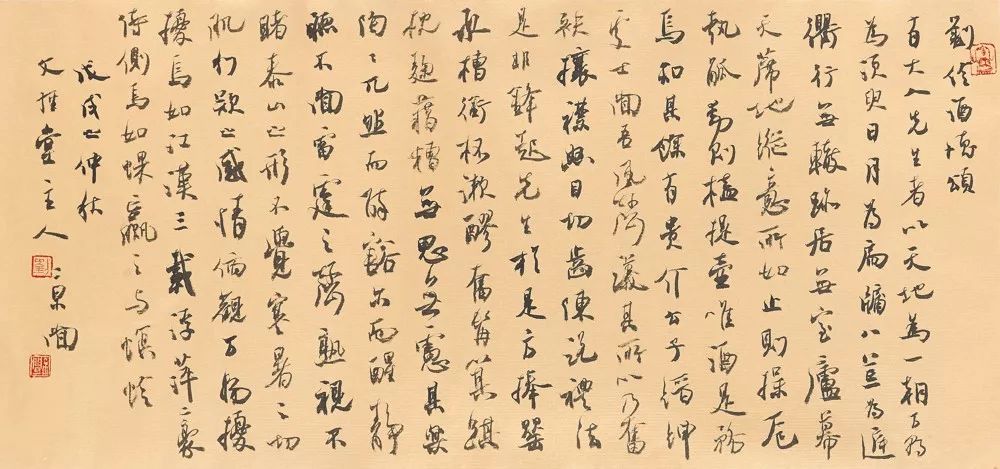 劉伶酒德頌
有大人先生者以天地為一朝万
為須臾日月為扃牖八荒為庭
衢行無轍跡居無室廬幕
天席地縱意所如止則操卮
執觚動則榼提壺唯酒是務
焉知其餘有貴介公子縉紳
處士聞吾風聲議其所以乃奮
袂攘襟怒目切齒陳說禮法
是非鋒起先生於是方捧罌
承槽銜杯漱醪奮髯箕踞
枕麴藉糟無思無慮其樂
陶陶兀然而醉豁爾而醒靜
聽不聞雷霆之聲熟視不
睹泰山之形不覺寒暑之切
肌利欲之感情俯觀万物擾
擾焉如江漢三載浮萍二豪
侍側焉如蜾蠃之與螟蛉
戊戌之仲秋
文堂主人